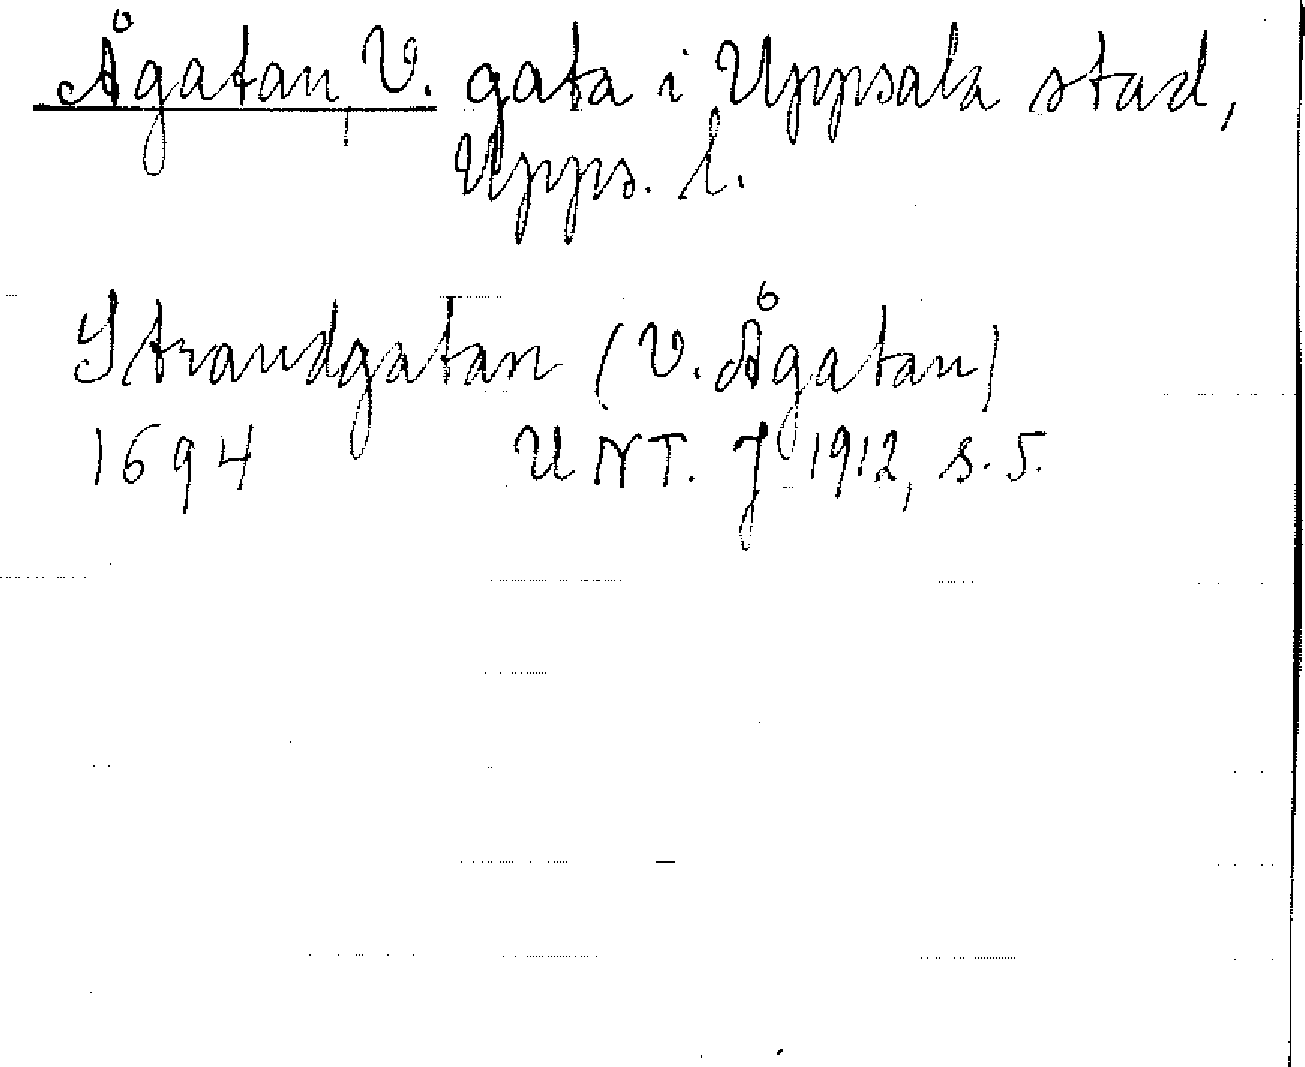 Ågatan, V. gata i Uppsala stad,
Upps. l.
Strandgatan (V. Ågatan)
1694 UNT. J 1912, s. 5.